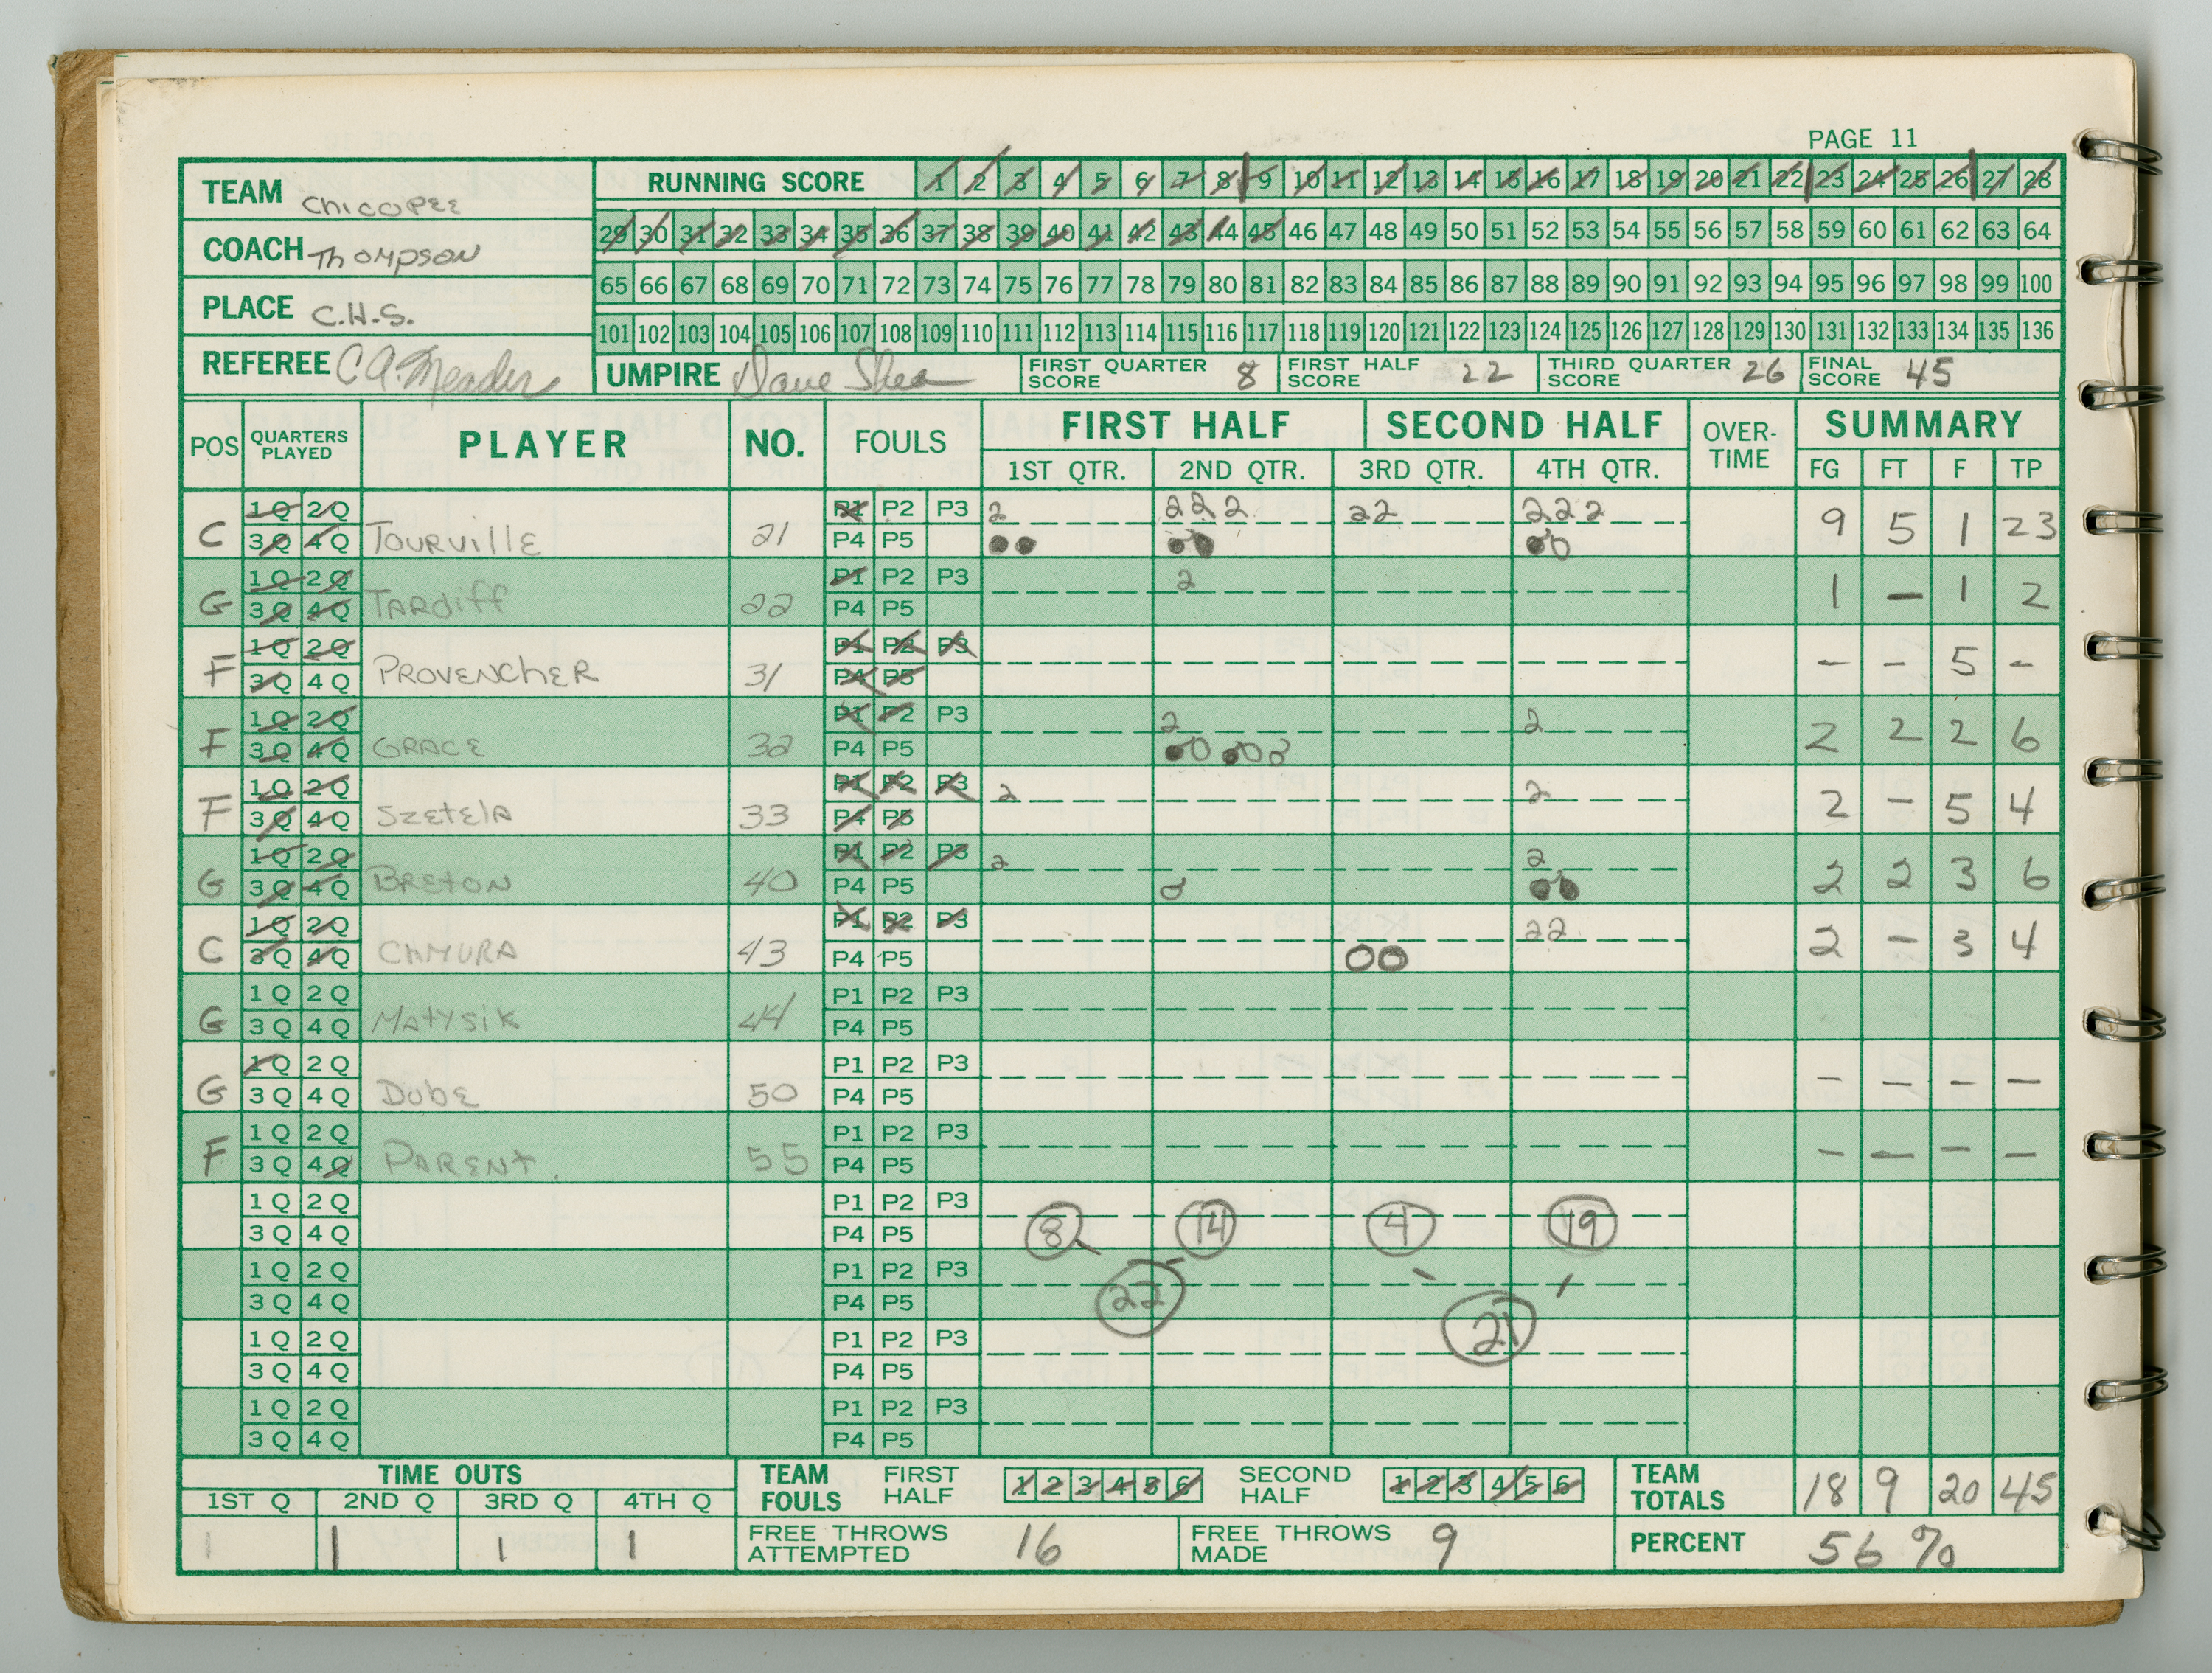 PAGE 11
TEAM Chicopee
RUNNING SCORE 1 2 3 4 5 6 7 8 9 10 11 12 13 14 15 16 17 18 19 20 21 22 23 24 25 26 27 28
COACH Thompson
29 30 31 32 33 34 35 36 37 38 39 40 41 42 43 44 45 46 47 48 49 50 51 52 53 54 55 56 57 58 59 60 61 62 63 64
PLACE C.H.S.
65 66 67 68 69 70 71 72 73 74 75 76 77 78 79 80 81 82 83 84 85 86 87 88 89 90 91 92 93 94 95 96 97 98 99 100
101 102 103 104 105 106 107 108 109 110 111 112 113 114 115 116 117 118 119 120 121 122 123 124 125 126 127 128 129 130 131 132 133 134 135 136
REFEREE C A. Meader UMPIRE Dave Shea FIRST QUARTER SCORE 8 FIRST HALF SCORE 22 THIRD QUARTER SCORE 26 FINAL SCORE 45
POS QUARTERS PLAYED PLAYER NO. FOULS FIRST HALF SECOND HALF OVER-TIME SUMMARY
1ST QTR. 2ND QTR. 3RD QTR. 4TH QTR. FG FT F TP
1Q 2Q P1 P2 P3 2 222 22 222
C 3Q 4Q Tourville 21 P4 P5 9 5 1 23
1Q 2Q P1 P2 P3 2
G 3Q 4Q Tardiff 22 P4 P5 1 - 1 2
1Q 2Q P1 P2 P3
F 3Q 4Q Provencher 31 P4 P5 - - 5 -
1Q 2Q P1 P2 P3 2 2
F 3Q 4Q Grace 32 P4 P5 2 2 2 6
1Q 2Q P1 P2 P3 2 2
F 3Q 4Q Szetela 33 P4 P5 2 - 5 4
1Q 2Q P1 P2 P3 2 2
G 3Q 4Q Breton 40 P4 P5 2 2 3 6
1Q 2Q P1 P2 P3 22
C 3Q 4Q Chmura 43 P4 P5 2 - 3 4
1Q 2Q P1 P2 P3
G 3Q 4Q Matysik 44 P4 P5
1Q 2Q P1 P2 P3
G 3Q 4Q Dube 50 P4 P5 - - - -
1Q 2Q P1 P2 P3
F 3Q 4Q Parent. 55 P4 P5 - - - -
1Q 2Q P1 P2 P3
3Q 4Q P4 P5 8 14 4 19
1Q 2Q P1 P2 P3
3Q 4Q P4 P5 22 21
1Q 2Q P1 P2 P3
3Q 4Q P4 P5
1Q 2Q P1 P2 P3
3Q 4Q P4 P5
TIME OUTS TEAM FOULS FIRST HALF 1 2 3 4 5 6 SECOND HALF 1 2 3 4 5 6 TEAM TOTALS 18 9 20 45
1ST Q 2ND Q 3RD Q 4TH Q
1 1 1 1 FREE THROWS ATTEMPTED 16 FREE THROWS MADE 9 PERCENT 56%